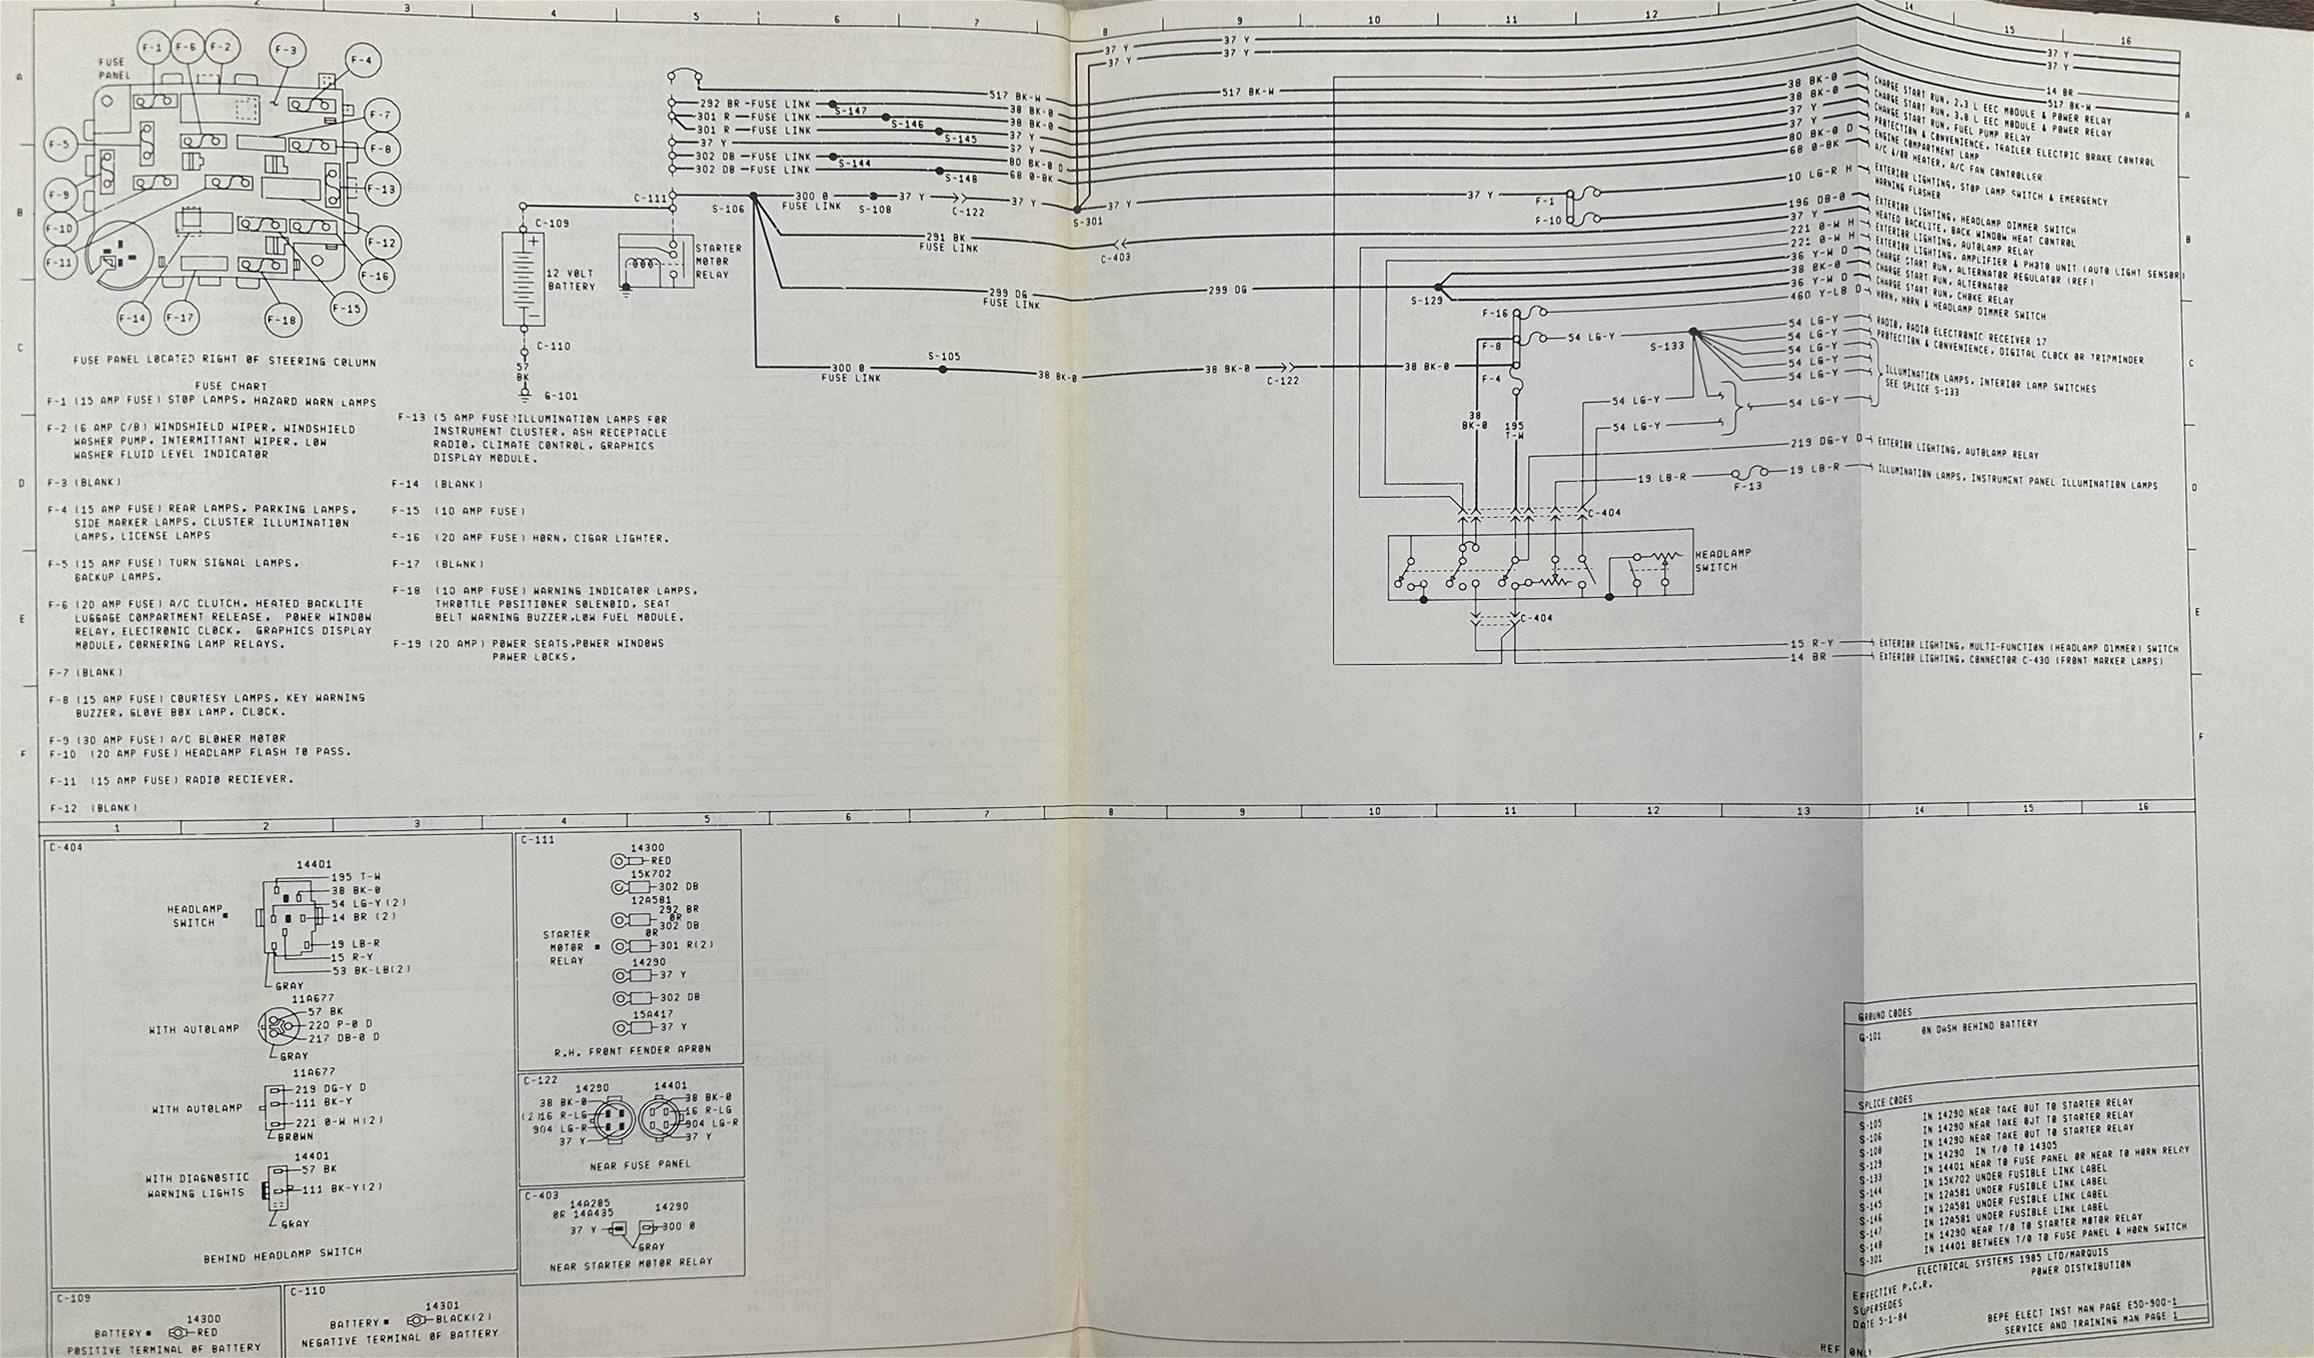 1 2 3 4 5 6 7 8 9 10 11 12 14 15 16
A
B
C
D
E
F
FUSE
PANEL
F-1
F-6
F-2
F-3
F-4
F-7
F-5
F-8
F-9
F-13
F-10
F-12
F-11
F-16
F-14
F-17
F-18
F-15
FUSE PANEL LOCATED RIGHT OF STEERING COLUMN
FUSE CHART
F-1 (15 AMP FUSE) STOP LAMPS, HAZARD WARN LAMPS
F-2 (6 AMP C/B) WINDSHIELD WIPER, WINDSHIELD
WASHER PUMP, INTERMITTANT WIPER, LOW
WASHER FLUID LEVEL INDICATOR
F-3 (BLANK)
F-4 (15 AMP FUSE) REAR LAMPS, PARKING LAMPS,
SIDE MARKER LAMPS, CLUSTER ILLUMINATION
LAMPS, LICENSE LAMPS
F-5 (15 AMP FUSE) TURN SIGNAL LAMPS,
BACKUP LAMPS.
F-6 (20 AMP FUSE) A/C CLUTCH, HEATED BACKLITE
LUGGAGE COMPARTMENT RELEASE, POWER WINDOW
RELAY, ELECTRONIC CLOCK, GRAPHICS DISPLAY
MODULE, CORNERING LAMP RELAYS.
F-7 (BLANK)
F-8 (15 AMP FUSE) COURTESY LAMPS, KEY WARNING
BUZZER, GLOVE BOX LAMP, CLOCK.
F-9 (30 AMP FUSE) A/C BLOWER MOTOR
F-10 (20 AMP FUSE) HEADLAMP FLASH TO PASS.
F-11 (15 AMP FUSE) RADIO RECIEVER.
F-12 (BLANK)
F-13 (5 AMP FUSE) ILLUMINATION LAMPS FOR
INSTRUMENT CLUSTER, ASH RECEPTACLE
RADIO, CLIMATE CONTROL, GRAPHICS
DISPLAY MODULE.
F-14 (BLANK)
F-15 (10 AMP FUSE)
F-16 (20 AMP FUSE) HORN, CIGAR LIGHTER.
F-17 (BLANK)
F-18 (10 AMP FUSE) WARNING INDICATOR LAMPS,
THROTTLE POSITIONER SOLENOID, SEAT
BELT WARNING BUZZER,LOW FUEL MODULE.
F-19 (20 AMP) POWER SEATS,POWER WINDOWS
POWER LOCKS.
292 BR FUSE LINK S-147
301 R FUSE LINK S-146
301 R FUSE LINK S-145
37 Y
302 DB FUSE LINK S-144
302 DB FUSE LINK S-148
C-111
S-106
300 O
FUSE LINK
S-108
37 Y
C-122
37 Y
S-301
37 Y
C-109
12 VOLT
BATTERY
STARTER
MOTOR
RELAY
C-110
57
BK
G-101
291 BK
FUSE LINK
C-403
299 DG
FUSE LINK
299 DG
S-129
300 O
FUSE LINK
S-105
38 BK-O
38 BK-O
C-122
38 BK-O
517 BK-W
38 BK-O
38 BK-O
37 Y
37 Y
80 BK-O D
68 O-BK
37 Y
37 Y
37 Y
37 Y
517 BK-W
37 Y
37 Y
14 BR
517 BK-W
37 Y
F-1
F-10
F-16
F-8
F-4
54 LG-Y
S-133
38
BK-O
195
T-W
54 LG-Y
54 LG-Y
19 LB-R
F-13
C-404
HEADLAMP
SWITCH
C-404
38 BK-O CHARGE START RUN, 2.3 L EEC MODULE & POWER RELAY
38 BK-O CHARGE START RUN, 3.8 L EEC MODULE & POWER RELAY
37 Y CHARGE START RUN, FUEL PUMP RELAY
37 Y PROTECTION & CONVENIENCE, TRAILER ELECTRIC BRAKE CONTROL
80 BK-O D ENGINE COMPARTMENT LAMP
68 O-BK A/C &/OR HEATER, A/C FAN CONTROLLER
10 LG-R H EXTERIOR LIGHTING, STOP LAMP SWITCH & EMERGENCY
WARNING FLASHER
196 DB-O EXTERIOR LIGHTING, HEADLAMP DIMMER SWITCH
37 Y HEATED BACKLITE, BACK WINDOW HEAT CONTROL
221 O-W H EXTERIOR LIGHTING, AUTOLAMP RELAY
221 O-W H EXTERIOR LIGHTING, AMPLIFIER & PHOTO UNIT (AUTO LIGHT SENSOR)
36 Y-W D CHARGE START RUN, ALTERNATOR REGULATOR (REF)
38 BK-O CHARGE START RUN, ALTERNATOR
36 Y-W D CHARGE START RUN, CHOKE RELAY
460 Y-LB D HORN, HORN & HEADLAMP DIMMER SWITCH
54 LG-Y RADIO, RADIO ELECTRONIC RECEIVER 17
54 LG-Y PROTECTION & CONVENIENCE, DIGITAL CLOCK OR TRIPMINDER
54 LG-Y
54 LG-Y
54 LG-Y
54 LG-Y
ILLUMINATION LAMPS, INTERIOR LAMP SWITCHES
SEE SPLICE S-133
219 DG-Y D EXTERIOR LIGHTING, AUTOLAMP RELAY
19 LB-R ILLUMINATION LAMPS, INSTRUMENT PANEL ILLUMINATION LAMPS
15 R-Y EXTERIOR LIGHTING, MULTI-FUNCTION (HEADLAMP DIMMER) SWITCH
14 BR EXTERIOR LIGHTING, CONNECTOR C-430 (FRONT MARKER LAMPS)
1 2 3 4 5 6 7 8 9 10 11 12 13 14 15 16
C-404
14401
HEADLAMP
SWITCH
195 T-W
38 BK-O
54 LG-Y(2)
14 BR (2)
19 LB-R
15 R-Y
53 BK-LB(2)
GRAY
11A677
WITH AUTOLAMP
57 BK
220 P-O D
217 DB-O D
GRAY
11A677
WITH AUTOLAMP
219 DG-Y D
111 BK-Y
221 O-W H(2)
BROWN
14401
WITH DIAGNOSTIC
WARNING LIGHTS
57 BK
111 BK-Y(2)
GRAY
BEHIND HEADLAMP SWITCH
C-109
14300
BATTERY RED
POSITIVE TERMINAL OF BATTERY
C-110
14301
BATTERY BLACK(2)
NEGATIVE TERMINAL OF BATTERY
C-111
14300
RED
15K702
302 DB
12A581
292 BR
OR
302 DB
OR
301 R(2)
STARTER
MOTOR
RELAY
14290
37 Y
302 DB
15A417
37 Y
R.H. FRONT FENDER APRON
C-122
14290
14401
38 BK-O
(2)16 R-LG
904 LG-R
37 Y
38 BK-O
16 R-LG
904 LG-R
37 Y
NEAR FUSE PANEL
C-403
14A285
OR 14A435
14290
37 Y
300 O
GRAY
NEAR STARTER MOTOR RELAY
GROUND CODES
G-101 ON DASH BEHIND BATTERY
SPLICE CODES
S-105 IN 14290 NEAR TAKE OUT TO STARTER RELAY
S-106 IN 14290 NEAR TAKE OUT TO STARTER RELAY
S-108 IN 14290 NEAR TAKE OUT TO STARTER RELAY
S-129 IN 14290 IN T/O TO 14305
S-133 IN 14401 NEAR TO FUSE PANEL OR NEAR TO HORN RELAY
S-144 IN 15K702 UNDER FUSIBLE LINK LABEL
S-145 IN 12A581 UNDER FUSIBLE LINK LABEL
S-146 IN 12A581 UNDER FUSIBLE LINK LABEL
S-147 IN 12A581 UNDER FUSIBLE LINK LABEL
S-148 IN 14290 NEAR T/O TO STARTER MOTOR RELAY
S-301 IN 14401 BETWEEN T/O TO FUSE PANEL & HORN SWITCH
ELECTRICAL SYSTEMS 1985 LTD/MARQUIS
POWER DISTRIBUTION
EFFECTIVE P.C.R.
SUPERSEDES
DATE 5-1-84
BEPE ELECT INST MAN PAGE E5D-900-1
SERVICE AND TRAINING MAN PAGE 1
REF ONLY